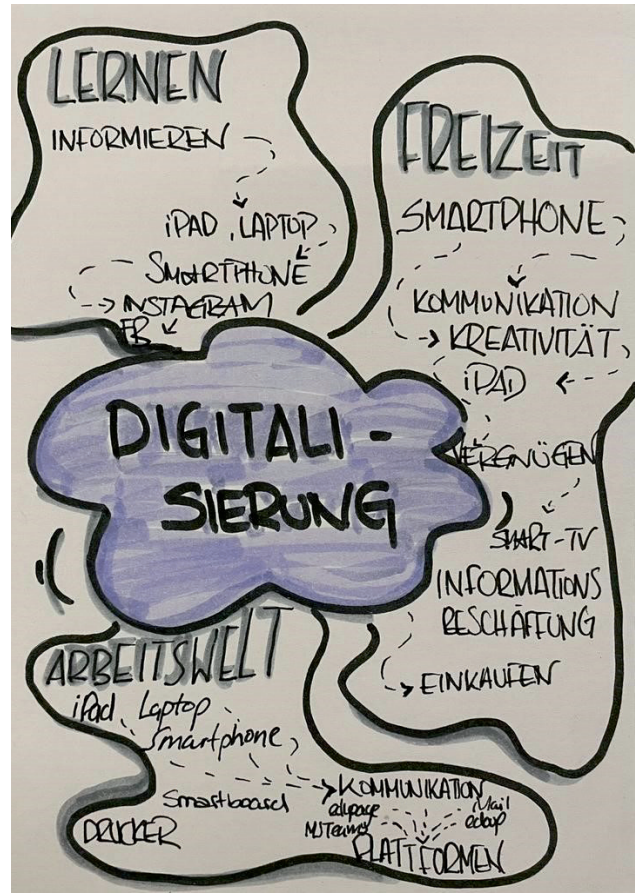 LERNEN
INFORMIEREN
iPAD, LAPTOP
SMARTPHONE
INSTAGRAM
FB
FREIZEIT
SMARTPHONE
KOMMUNIKATION
KREATIVITÄT
iPAD
VERGNÜGEN
SMART-TV
INFORMATIONS
BESCHAFFUNG
EINKAUFEN
DIGITALI-
SIERUNG
ARBEITSWELT
iPad Laptop
Smartphone
Smartboard
DRUCKER
KOMMUNIKATION
edupage
Mail
MSTeams
PLATTFORMEN